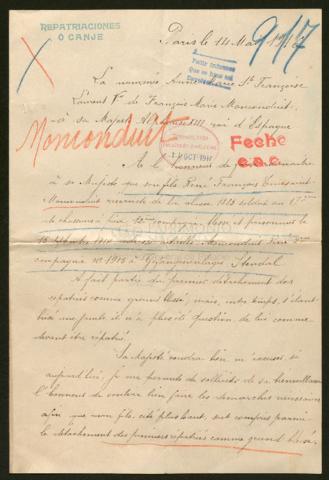 REPATRIACIONES
O CANJE
917
Paris le 14 Mai 1917
La nommée Anne Marie Ste Françoise
Laurent Vve de François Marie Monconduit
à sa Majesté Alphonse XIII roi d'Espagne
Monconduit
Fecha
C.a.c.
OCT 1917
A l'honneur de
à sa Majesté que son fils René François Toussaint
Monconduit de la classe 1915 soldat au 17ème
de chasseurs à pied compagnie blessé et prisonnier le
Monconduit René
compagnie No à Stendal
A fait partie du premier détachement des
rapatriés comme grand blessé, mais, entre temps, s'étant
il n'a plus été question de lui comme
devant être rapatrié.
Sa Majesté voudra bien m'excuser, si
aujourd'hui, je me permets de solliciter de sa bienveillance
l'honneur de vouloir bien faire les démarches nécessaires
afin que mon fils, cité plus haut, soit compris parmi
le détachement des premiers rapatriés comme grand blessé.